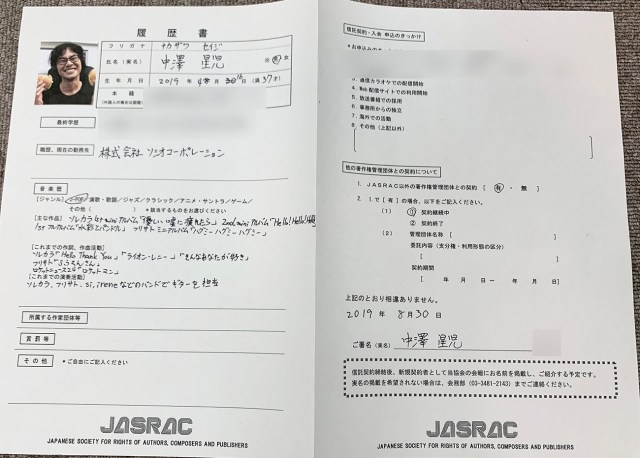 履歴書
フリガナ ナカザワ セイジ
氏名(実名) 中澤 星児 ※男・女
生年月日 2019年4月30日(満37才)
本籍
(外国人の場合は国籍)
最終学歴
職歴、現在の勤務先 株式会社 ソシオコーポレーション
音楽歴
演歌・歌謡/ジャズ/クラシック/アニメ・サントラ/ゲーム/
その他( ) *該当するものをお選びください
[主な作品]
[これまでの作詞、作曲活動]
ソレカラ「Hello Thank You」「ライオン・レニー」「そんなあなたが好き」
フリサト「ふうらんさん」
ロケットニュース24「ロケットマン」
[これまでの演奏活動]
ソレカラ、フリサト、si,ireneなどのバンドでギターを担当
所属する作家団体等
賞罰等
その他 *ご自由にご記入ください
JASRAC
JAPANESE SOCIETY FOR RIGHTS OF AUTHORS, COMPOSERS AND PUBLISHERS
信託契約・入会 申込のきっかけ
3. 通信カラオケでの配信開始
4. Web配信サイトでの利用開始
5. 放送番組での採用
6. 事務所からの独立
7. 海外での活動
8. その他(上記以外)
他の著作権管理団体との契約について
1. JASRAC以外の著作権管理団体との契約 [ 有 ・ 無 ]
2. 1で[有]の場合、以下をご記入ください。
(1) ① 契約継続中
② 契約終了
(2) 管理団体名称 [ ]
委託内容(支分権・利用形態の区分)
[ ]
契約期間
[ 年 月 日 ー 年 月 日]
上記のとおり相違ありません。
2019年 8月30日
ご署名(実名) 中澤 星児
信託契約締結後、新規契約者として当協会の会報にお名前を掲載し、ご紹介する予定です。
実名の掲載を希望されない場合は、会務部(03-3481-2143)までご連絡ください。
JASRAC
JAPANESE SOCIETY FOR RIGHTS OF AUTHORS, COMPOSERS AND PUBLISHERS